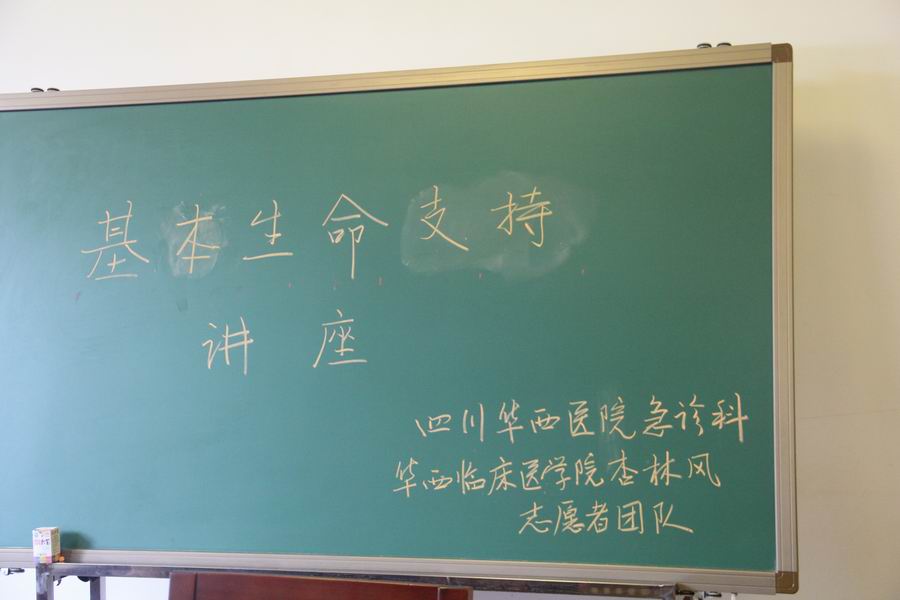 基本生命支持
讲座
四川华西医院急诊科
华西临床医学院杏林风
志愿者团队